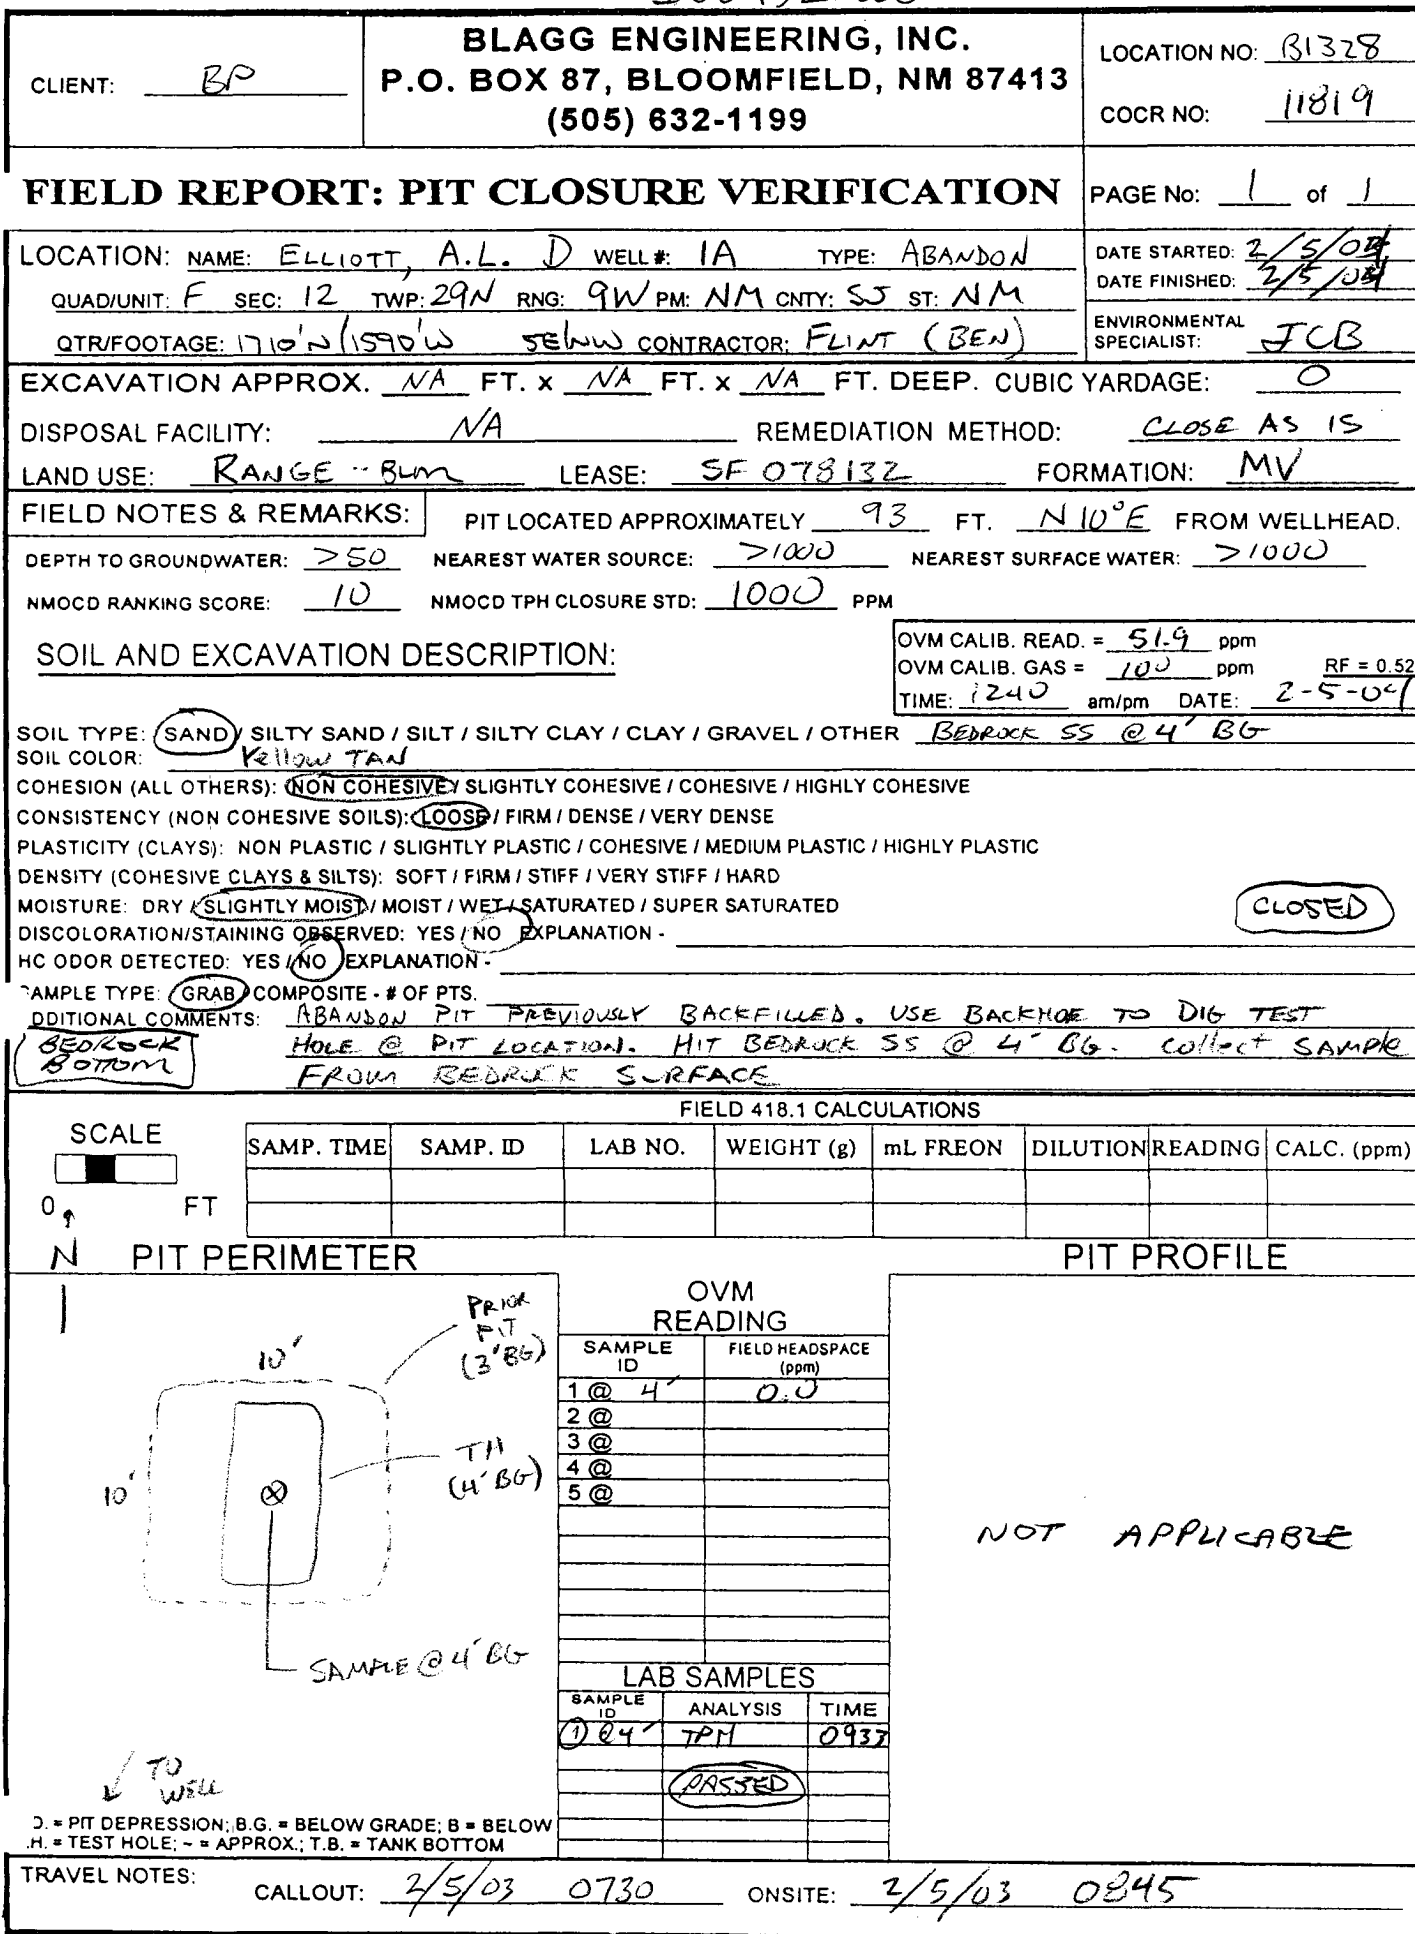 BLAGG ENGINEERING, INC.
P.O. BOX 87, BLOOMFIELD, NM 87413
(505) 632-1199
CLIENT: BP
LOCATION NO: B1328
COCR NO: 11819
FIELD REPORT: PIT CLOSURE VERIFICATION
PAGE No: 1 of 1
LOCATION: NAME: ELLIOTT, A.L. D WELL #: 1A TYPE: ABANDON
QUAD/UNIT: F SEC: 12 TWP: 29N RNG: 9W PM: NM CNTY: SJ ST: NM
QTR/FOOTAGE: 1710'N/1590'W SE/NW CONTRACTOR: FLINT (BEN)
DATE STARTED: 2/5/04
DATE FINISHED: 2/5/04
ENVIRONMENTAL
SPECIALIST: JCB
EXCAVATION APPROX. NA FT. x NA FT. x NA FT. DEEP. CUBIC YARDAGE: 0
DISPOSAL FACILITY: NA REMEDIATION METHOD: CLOSE AS IS
LAND USE: RANGE - BLM LEASE: SF 078132 FORMATION: MV
FIELD NOTES & REMARKS: PIT LOCATED APPROXIMATELY 93 FT. N10°E FROM WELLHEAD.
DEPTH TO GROUNDWATER: >50 NEAREST WATER SOURCE: >1000 NEAREST SURFACE WATER: >1000
NMOCD RANKING SCORE: 10 NMOCD TPH CLOSURE STD: 1000 PPM
SOIL AND EXCAVATION DESCRIPTION:
OVM CALIB. READ. = 51.9 ppm
OVM CALIB. GAS = 100 ppm RF = 0.52
TIME: 1240 am/pm DATE: 2-5-04
SOIL TYPE: SAND / SILTY SAND / SILT / SILTY CLAY / CLAY / GRAVEL / OTHER BEDROCK SS @ 4' BG
SOIL COLOR: Yellow TAN
COHESION (ALL OTHERS): NON COHESIVE / SLIGHTLY COHESIVE / COHESIVE / HIGHLY COHESIVE
CONSISTENCY (NON COHESIVE SOILS): LOOSE / FIRM / DENSE / VERY DENSE
PLASTICITY (CLAYS): NON PLASTIC / SLIGHTLY PLASTIC / COHESIVE / MEDIUM PLASTIC / HIGHLY PLASTIC
DENSITY (COHESIVE CLAYS & SILTS): SOFT / FIRM / STIFF / VERY STIFF / HARD
MOISTURE: DRY / SLIGHTLY MOIST / MOIST / WET / SATURATED / SUPER SATURATED
CLOSED
DISCOLORATION/STAINING OBSERVED: YES / NO EXPLANATION -
HC ODOR DETECTED: YES / NO EXPLANATION -
SAMPLE TYPE: GRAB / COMPOSITE - # OF PTS.
DDITIONAL COMMENTS: ABANDON PIT PREVIOUSLY BACKFILLED. USE BACKHOE TO DIG TEST
HOLE @ PIT LOCATION. HIT BEDROCK SS @ 4' BG. Collect SAMPle
FROM BEDROCK SURFACE
BEDROCK
BOTTOM
FIELD 418.1 CALCULATIONS
SCALE
0 FT
SAMP. TIME SAMP. ID LAB NO. WEIGHT (g) mL FREON DILUTION READING CALC. (ppm)
N PIT PERIMETER
PIT PROFILE
PRIOR
PIT
(3'BG)
10'
10'
TH
(4'BG)
SAMPLE @ 4' BG
TO
WELL
OVM
READING
SAMPLE ID FIELD HEADSPACE (ppm)
1 @ 4' 0.0
2 @
3 @
4 @
5 @
NOT APPLICABLE
LAB SAMPLES
SAMPLE ID ANALYSIS TIME
① @4' TPH 0933
PASSED
D. = PIT DEPRESSION; B.G. = BELOW GRADE; B = BELOW
.H. = TEST HOLE; ~ = APPROX.; T.B. = TANK BOTTOM
TRAVEL NOTES: CALLOUT: 2/5/03 0730 ONSITE: 2/5/03 0845